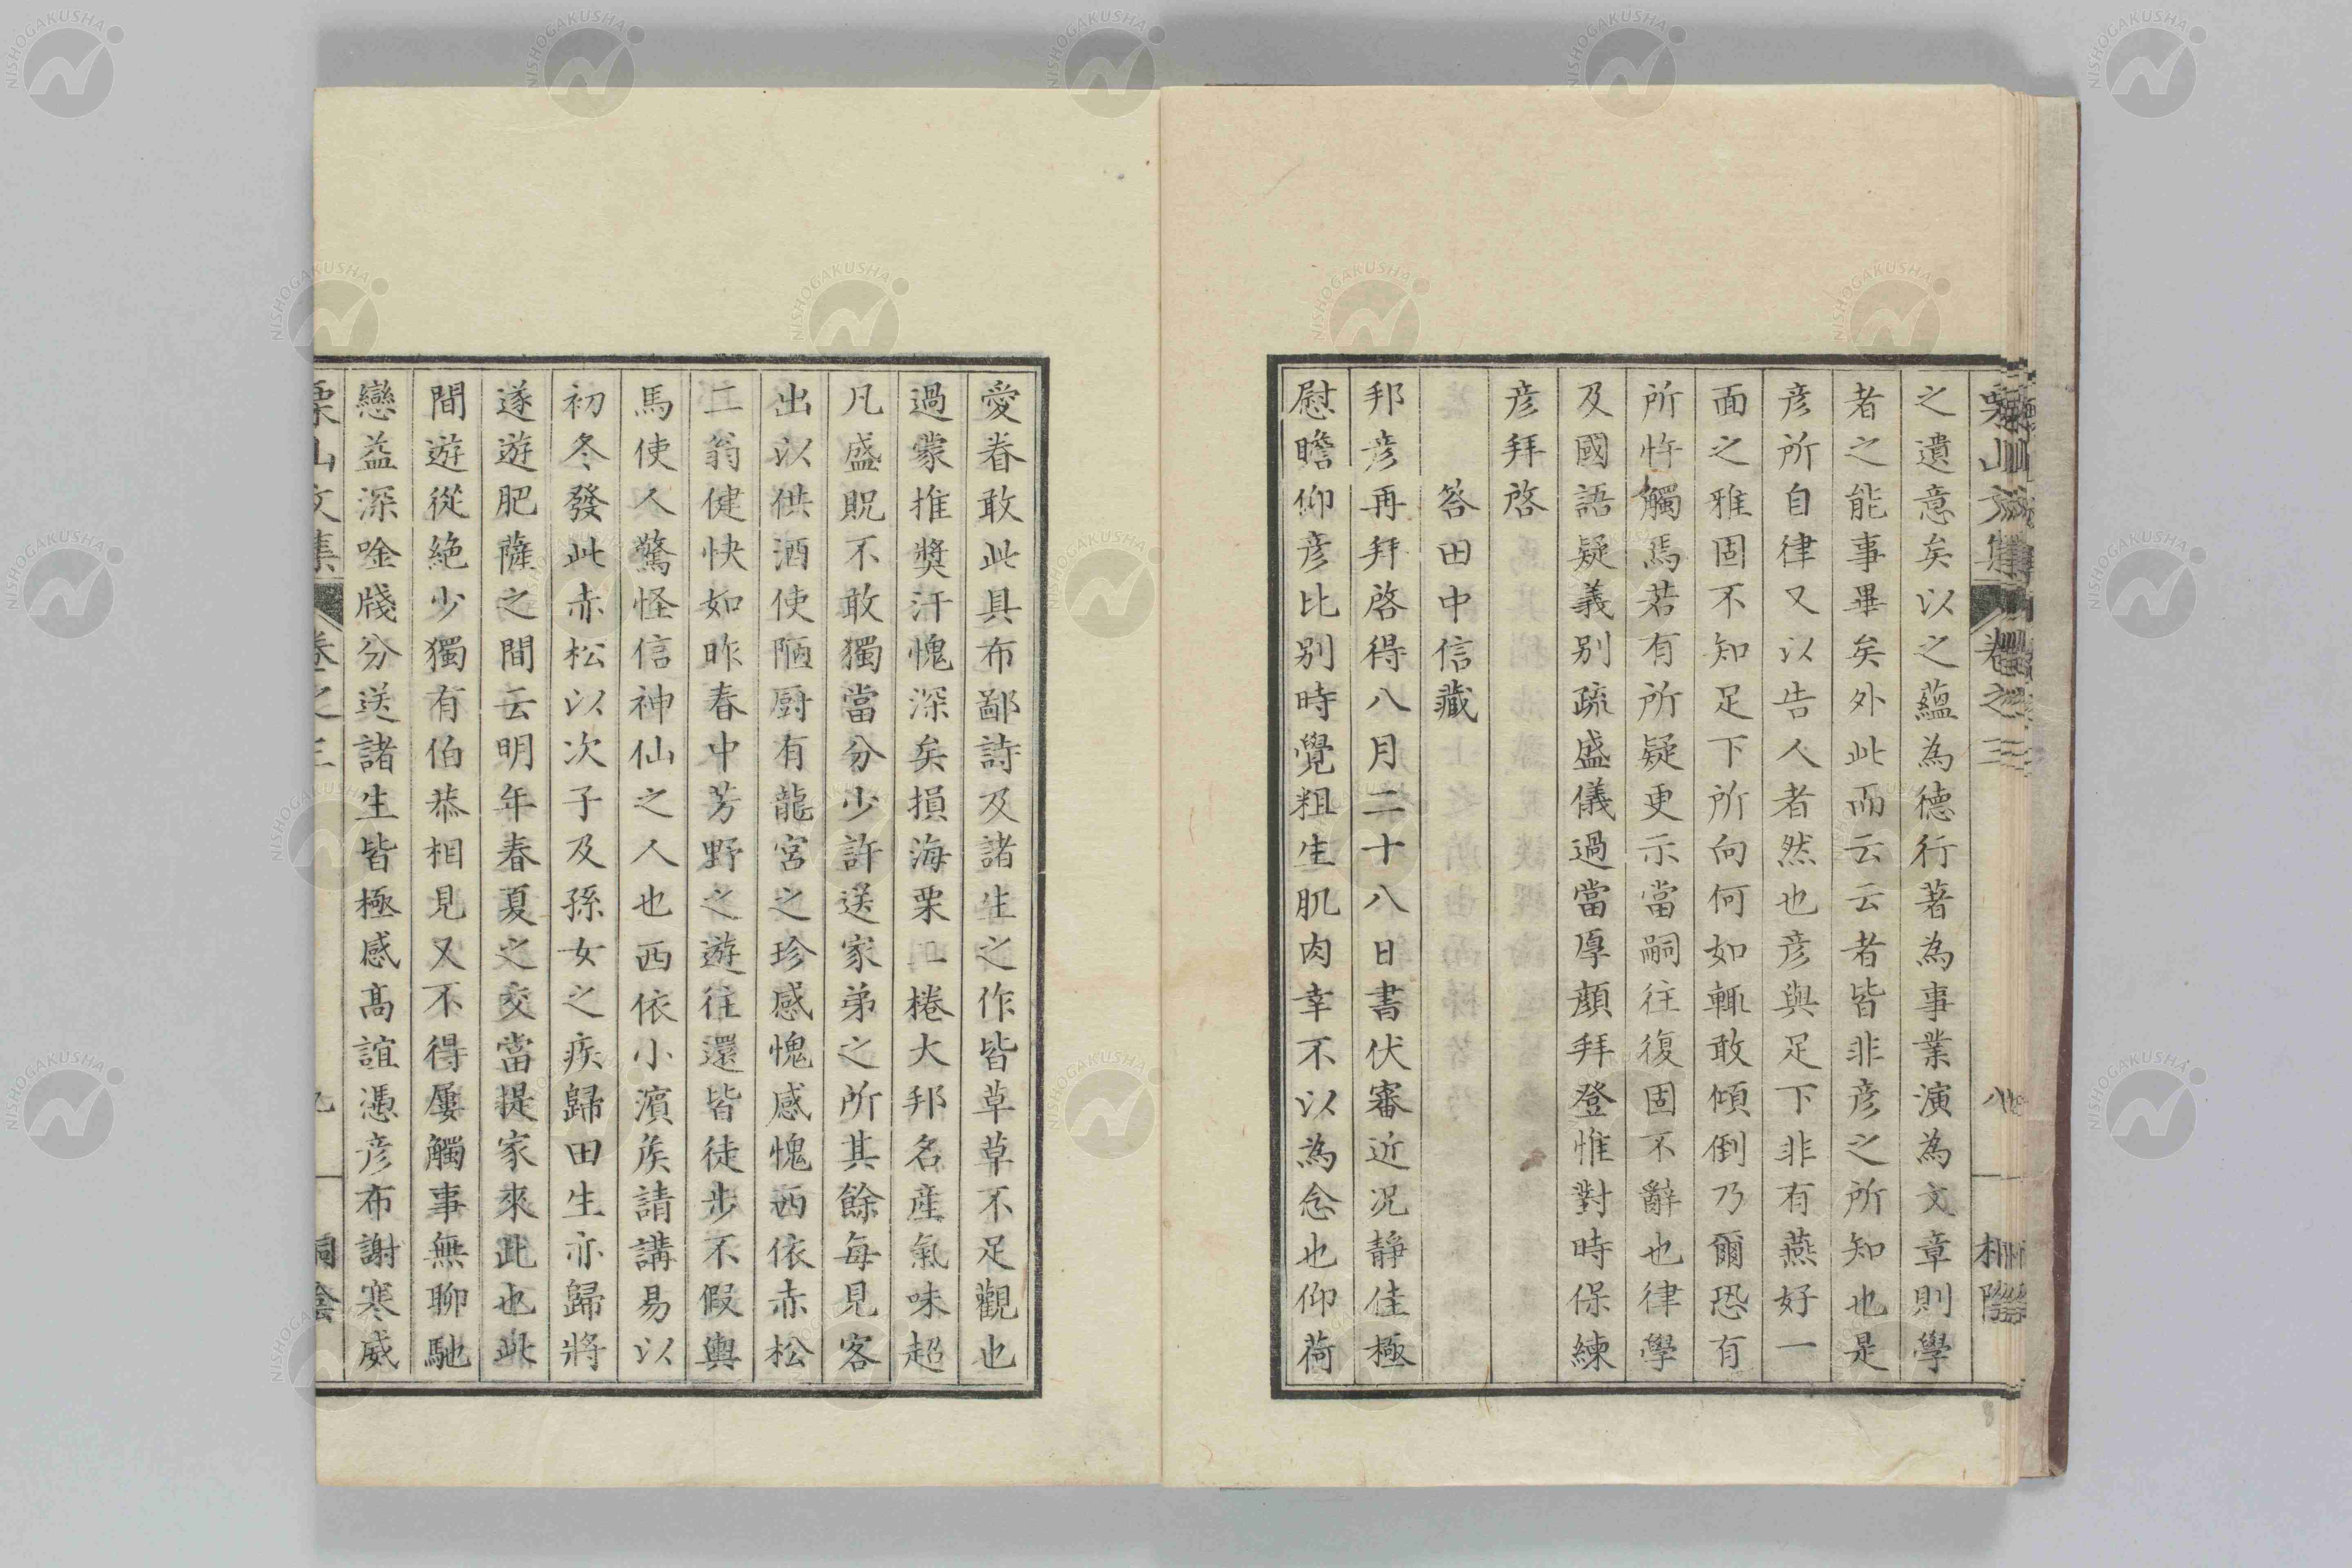 栗山文集 卷之三 八
之遺意矣以之蘊為德行著為事業演為文章則學
者之能事畢矣外此而云云者皆非彦之所知也是
彦所自律又以告人者然也彦與足下非有燕好一
面之雅固不知足下所向何如輒敢傾倒乃爾恐有
所忤觸焉若有所疑更示當嗣往復固不辭也律學
及國語疑義別疏盛儀過當厚顔拜登惟對時保練
彦拜啓
答田中信藏
邦彦再拜啓得八月二十八日書伏審近況靜佳極
慰瞻仰彦比別時覺粗生肌肉幸不以為念也仰荷
愛眷敢此具布鄙詩及諸生之作皆草草不足觀也
過蒙推奬汗愧深矣損海栗二棬大邦名產氣味超
凡盛貺不敢獨當分少許送家弟之所其餘每見客
出以供酒使陋厨有龍宮之珍感愧感愧西依赤松
二翁健快如昨春中芳野之遊往還皆徒步不假輿
馬使人驚怪信神仙之人也西依小濱矦請講易以
初冬發此赤松以次子及孫女之疾歸田生亦歸將
遂遊肥薩之間云明年春夏之交當提家來此也此
間遊從絶少獨有伯恭相見又不得屢觸事無聊馳
戀益深唫牋分送諸生皆極感高誼憑彦布謝寒威
栗山文集 卷之三 九
NISHOGAKUSHA